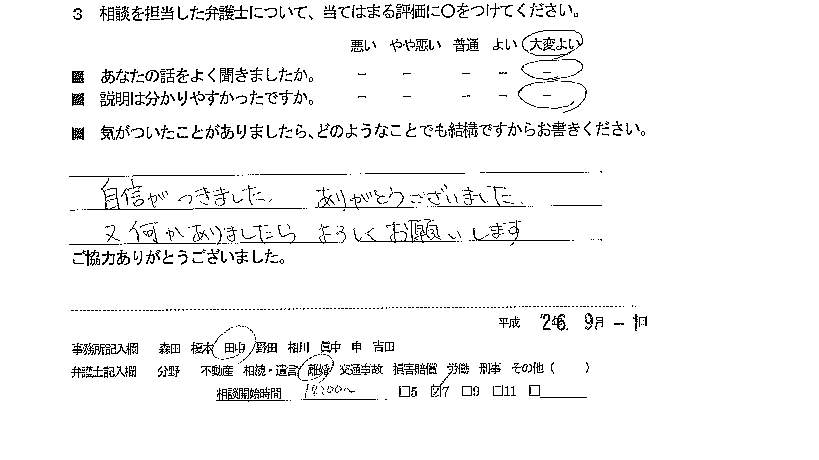 3 相談を担当した弁護士について、当てはまる評価に〇をつけてください。
悪い やや悪い 普通 よい 大変よい
あなたの話をよく聞きましたか。 － － － － －
説明は分かりやすかったですか。 － － － － －
気がついたことがありましたら、どのようなことでも結構ですからお書きください。
自信がつきました。 ありがとうございました。
又何かありましたら よろしくお願いします
ご協力ありがとうございました。
平成 26年 9月 －1日
事務所記入欄 森田 榎本 田中 野田 相川 田中 申 吉田
弁護士記入欄 分野 不動産 相続・遺言 離婚 交通事故 損害賠償 労働 刑事 その他（ ）
相談開始時間 □5 ☑7 □9 □11 □